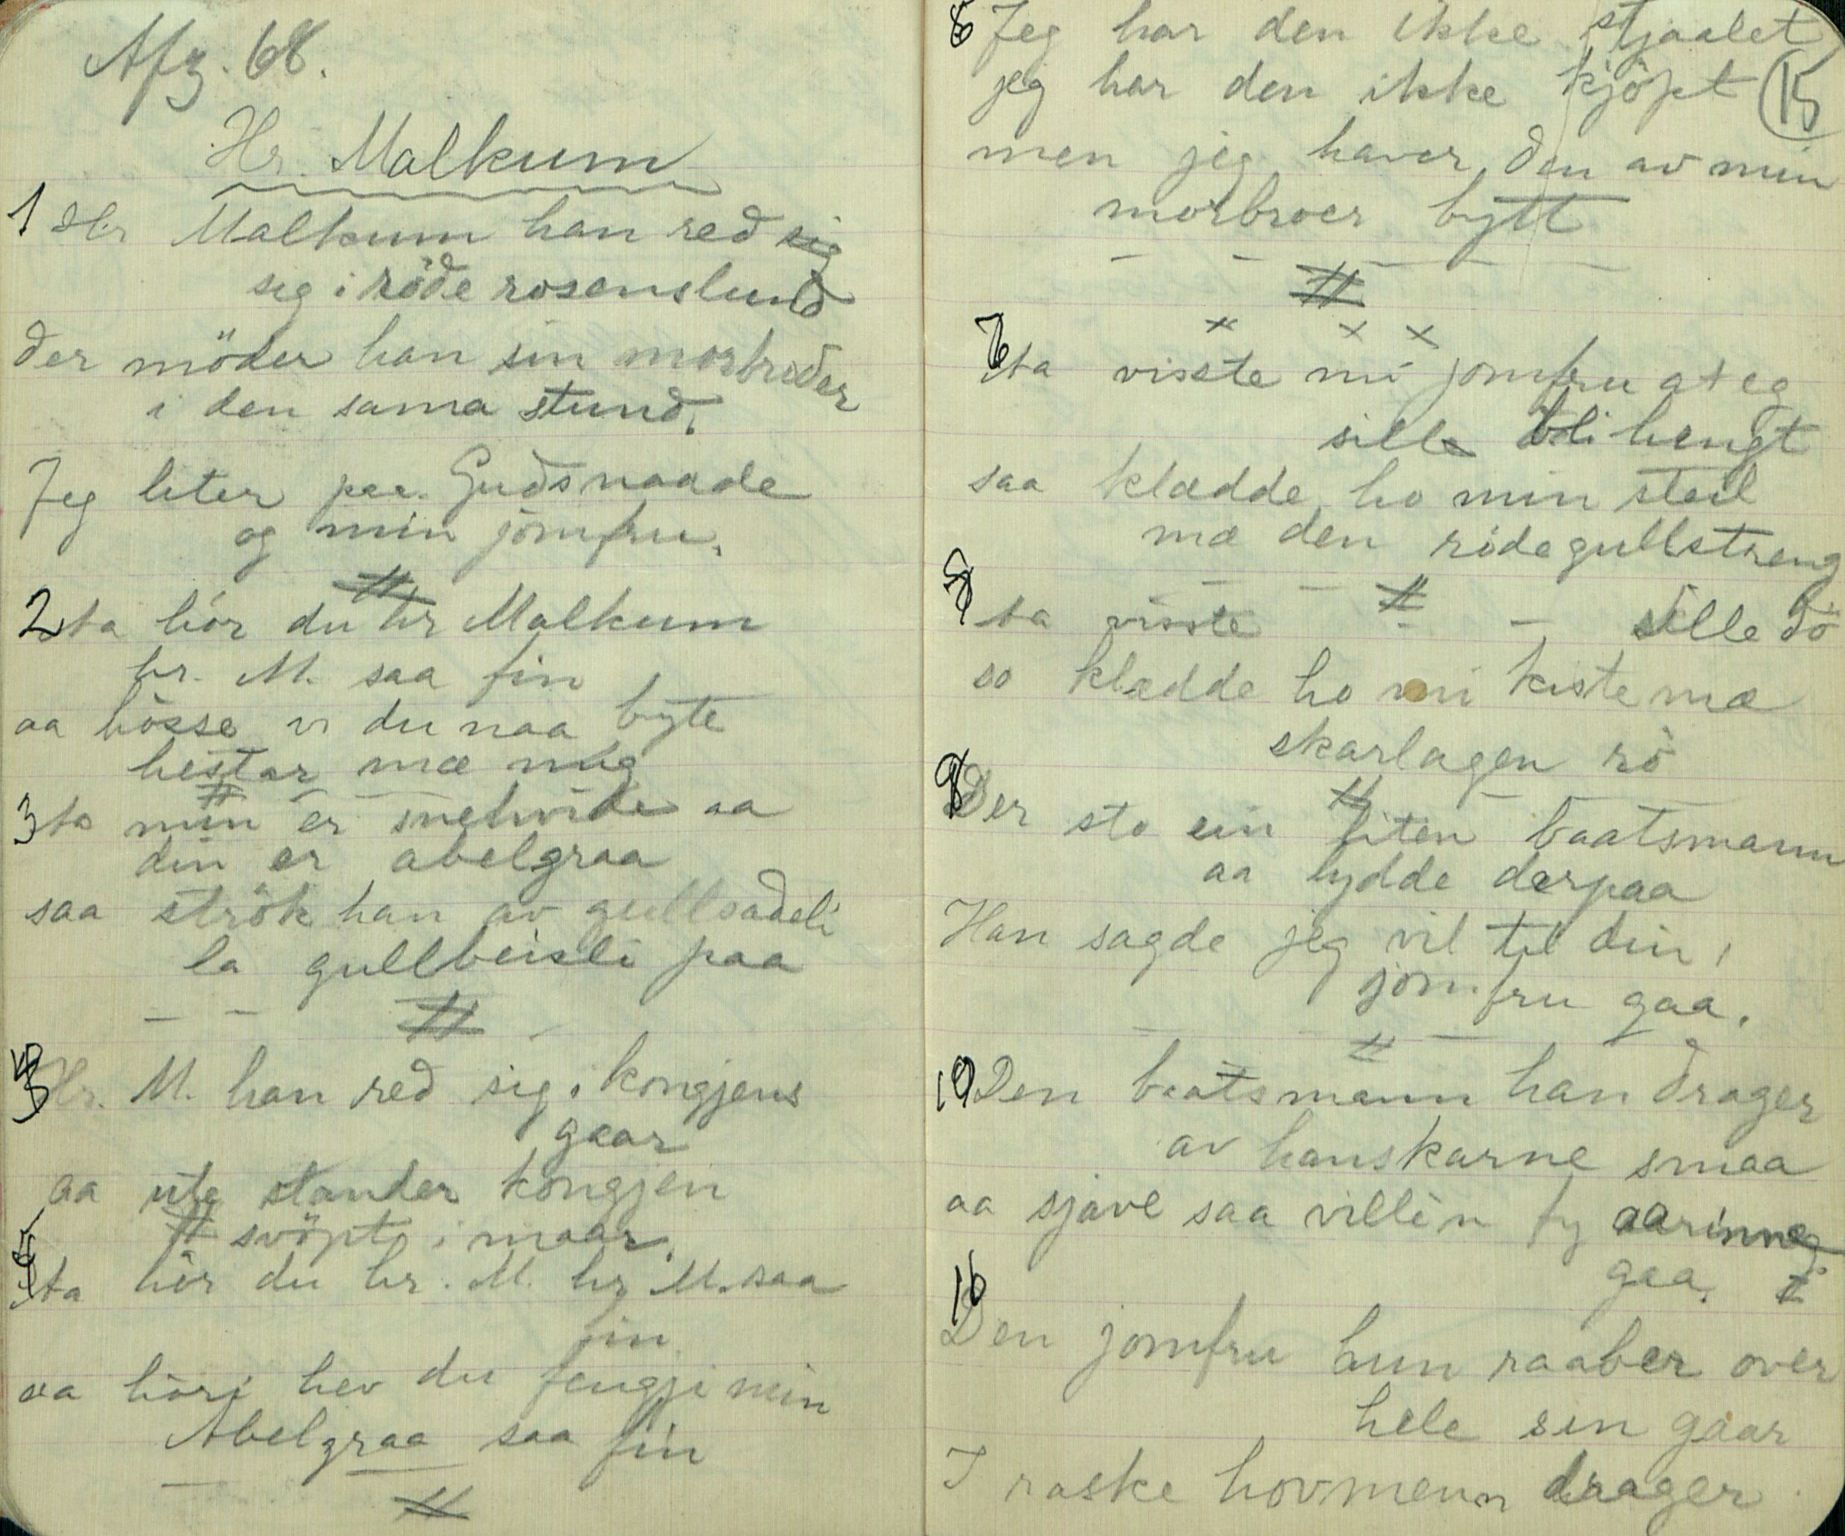 Afz. 68.
Hr. Malkum
1 Hr Malkum han red sig
sig i röde rosenslund
der möder han sin morbroder
i den sama stund.
Jeg liter paa Gudsnaade
og min jömfru.
2 ta hör du hr Malkum
hr. M. saa fin
aa hösse vi du naa byte
hestar mæ mig
3 ta min er snehvide aa
din er abelgraa
saa strök han av gullsadeli
la gullbeisli paa
Hr. M. han red sig i kongjens
gaar
aa ute stander kongjen
svöpt i maar.
ta hör du hr. M. hr M. saa
fin
aa hori hev du fengji min
Abelgraa saa fin
6 Jeg har den ikke stjaalet
jeg har den ikke kjöpt (15
men jeg haver den av min
morbroer bytt
ta visste mi jomfru at eg
sille bli hengt
saa klædde ho min steil
mæ den röde gullstreng
ta visste — sille dö
so klædde ho mi kiste mæ
skarlagen rö
9 Der sto ein liten baatsmann
aa lydde derpaa
Han sagde jeg vil til din
jomfru gaa.
10 Den baatsmann han drager
av hanskarne smaa
aa sjave saa villi'n fy aarinne
gaa.
Den jomfru hun raaber over
hele sin gaar
I raske hovmenn drager